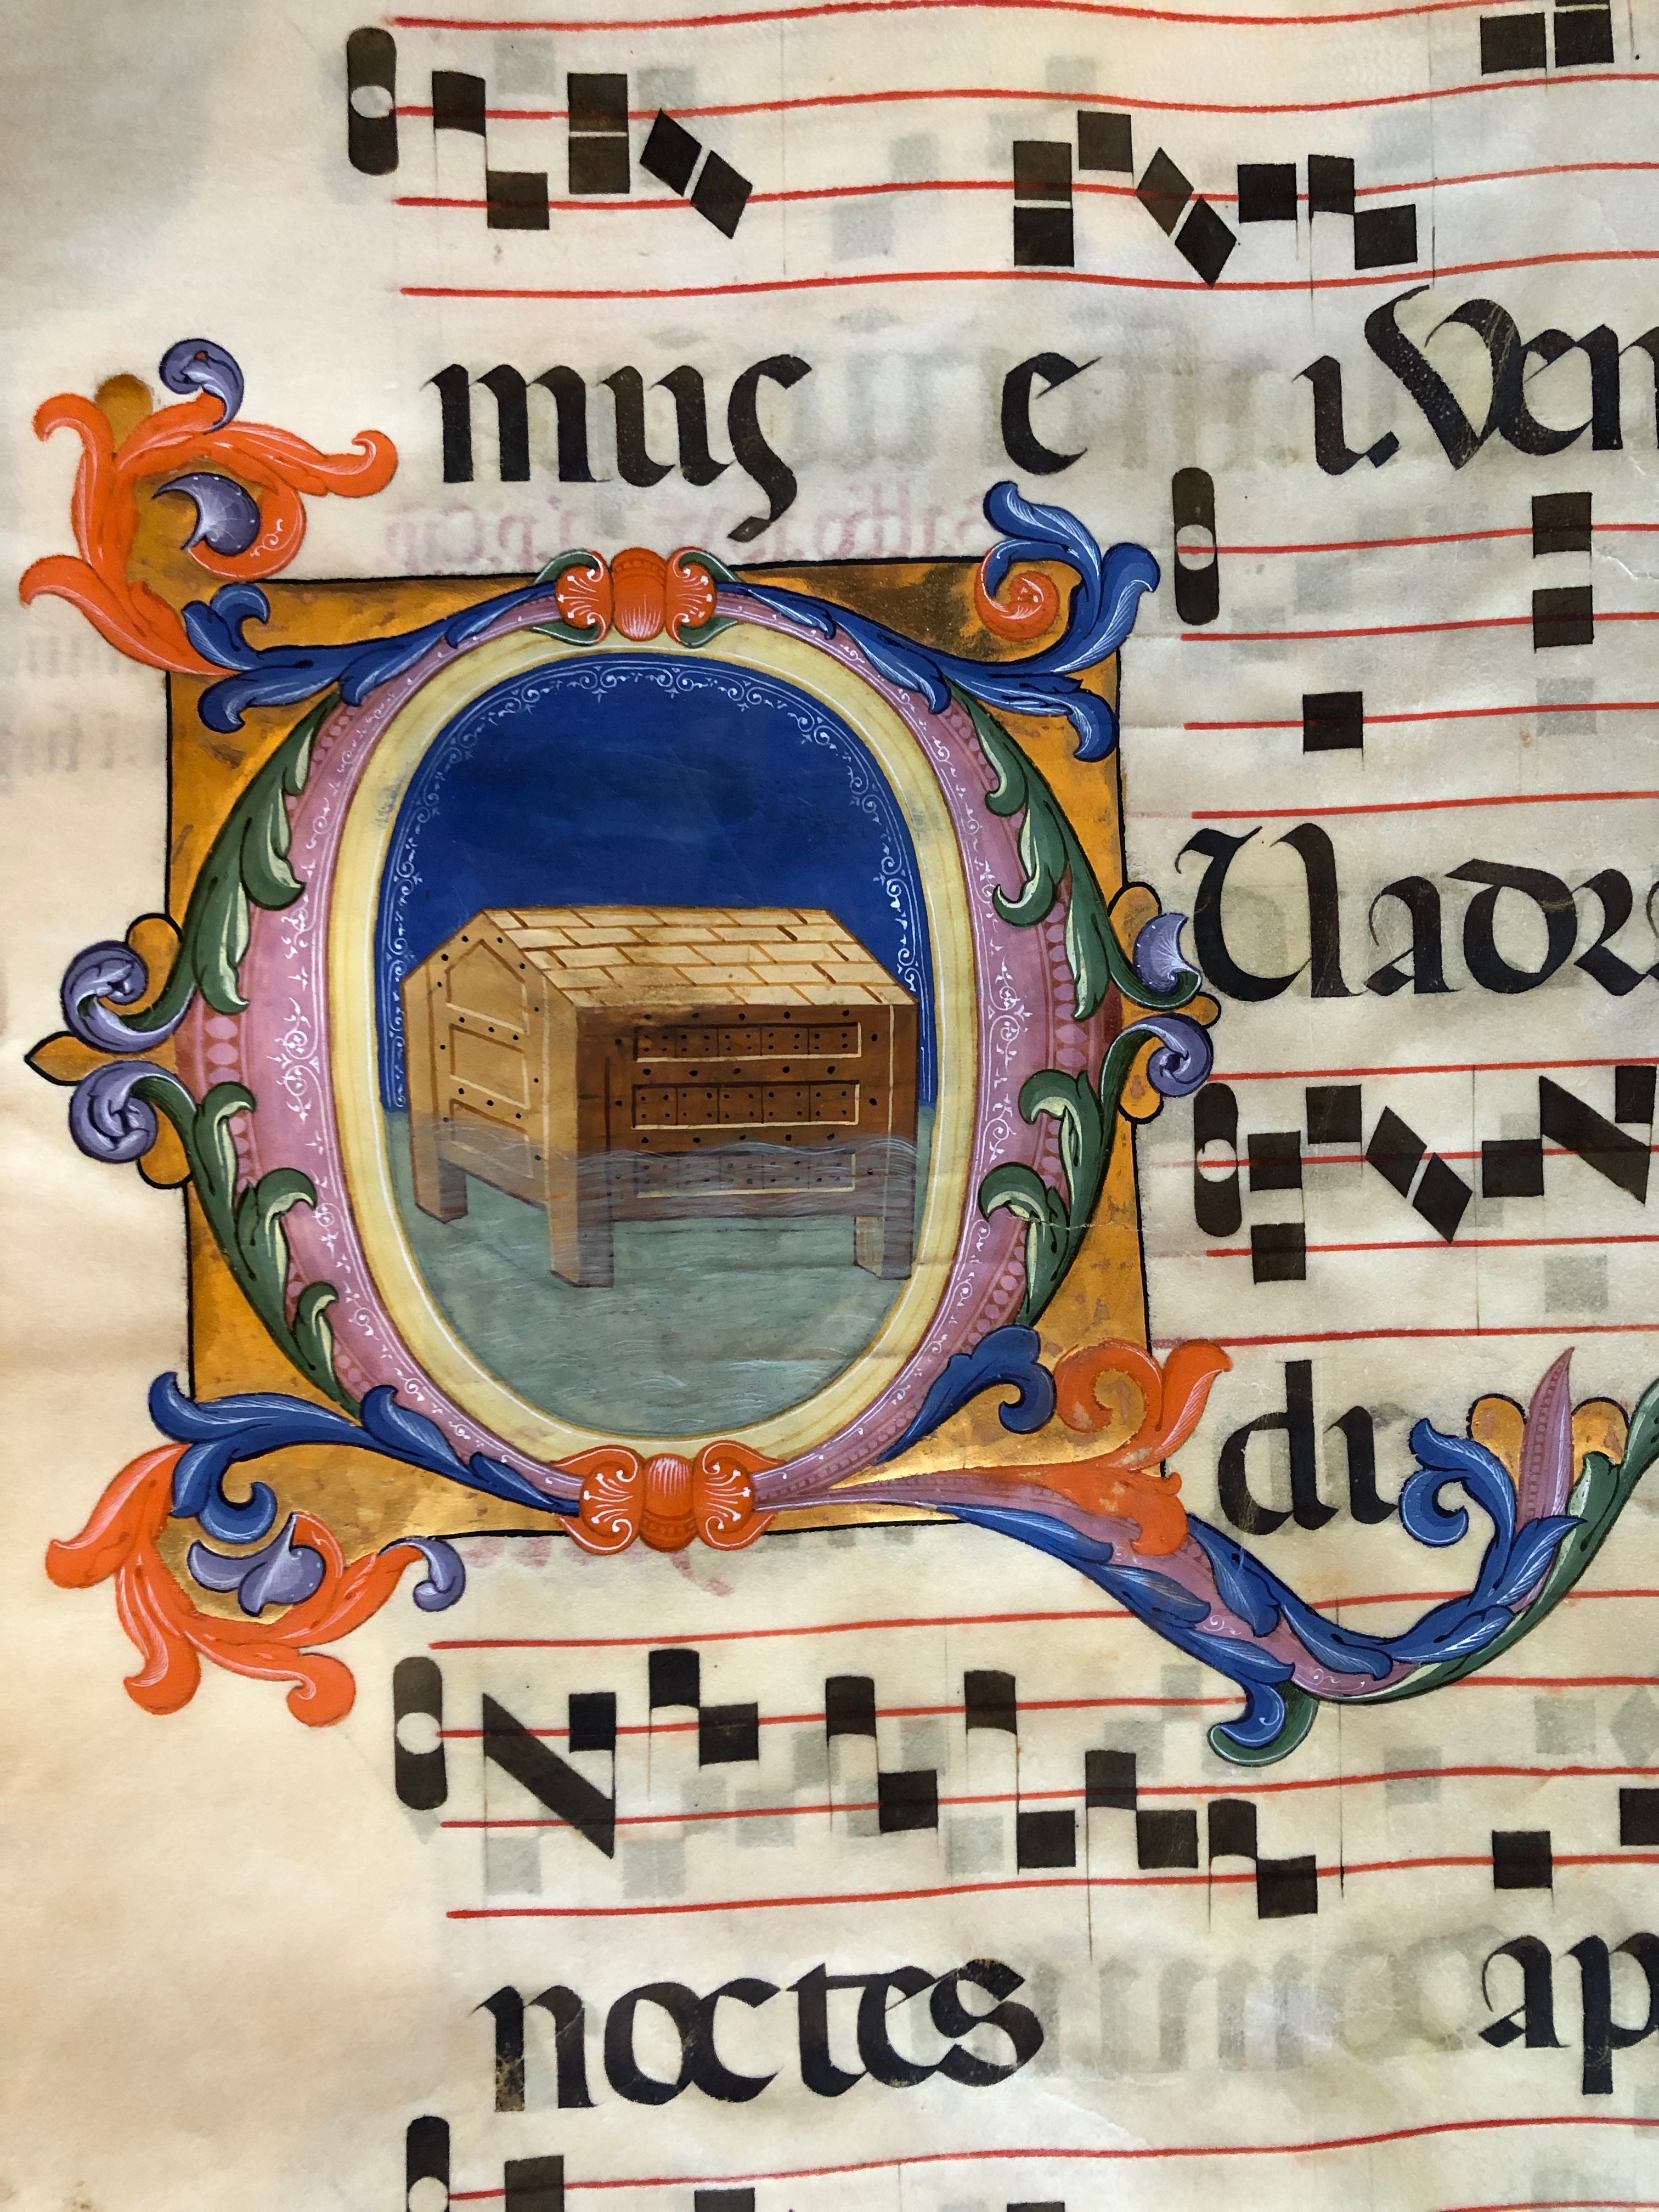 mus e i. Ven
Quadra
di
noctes ap